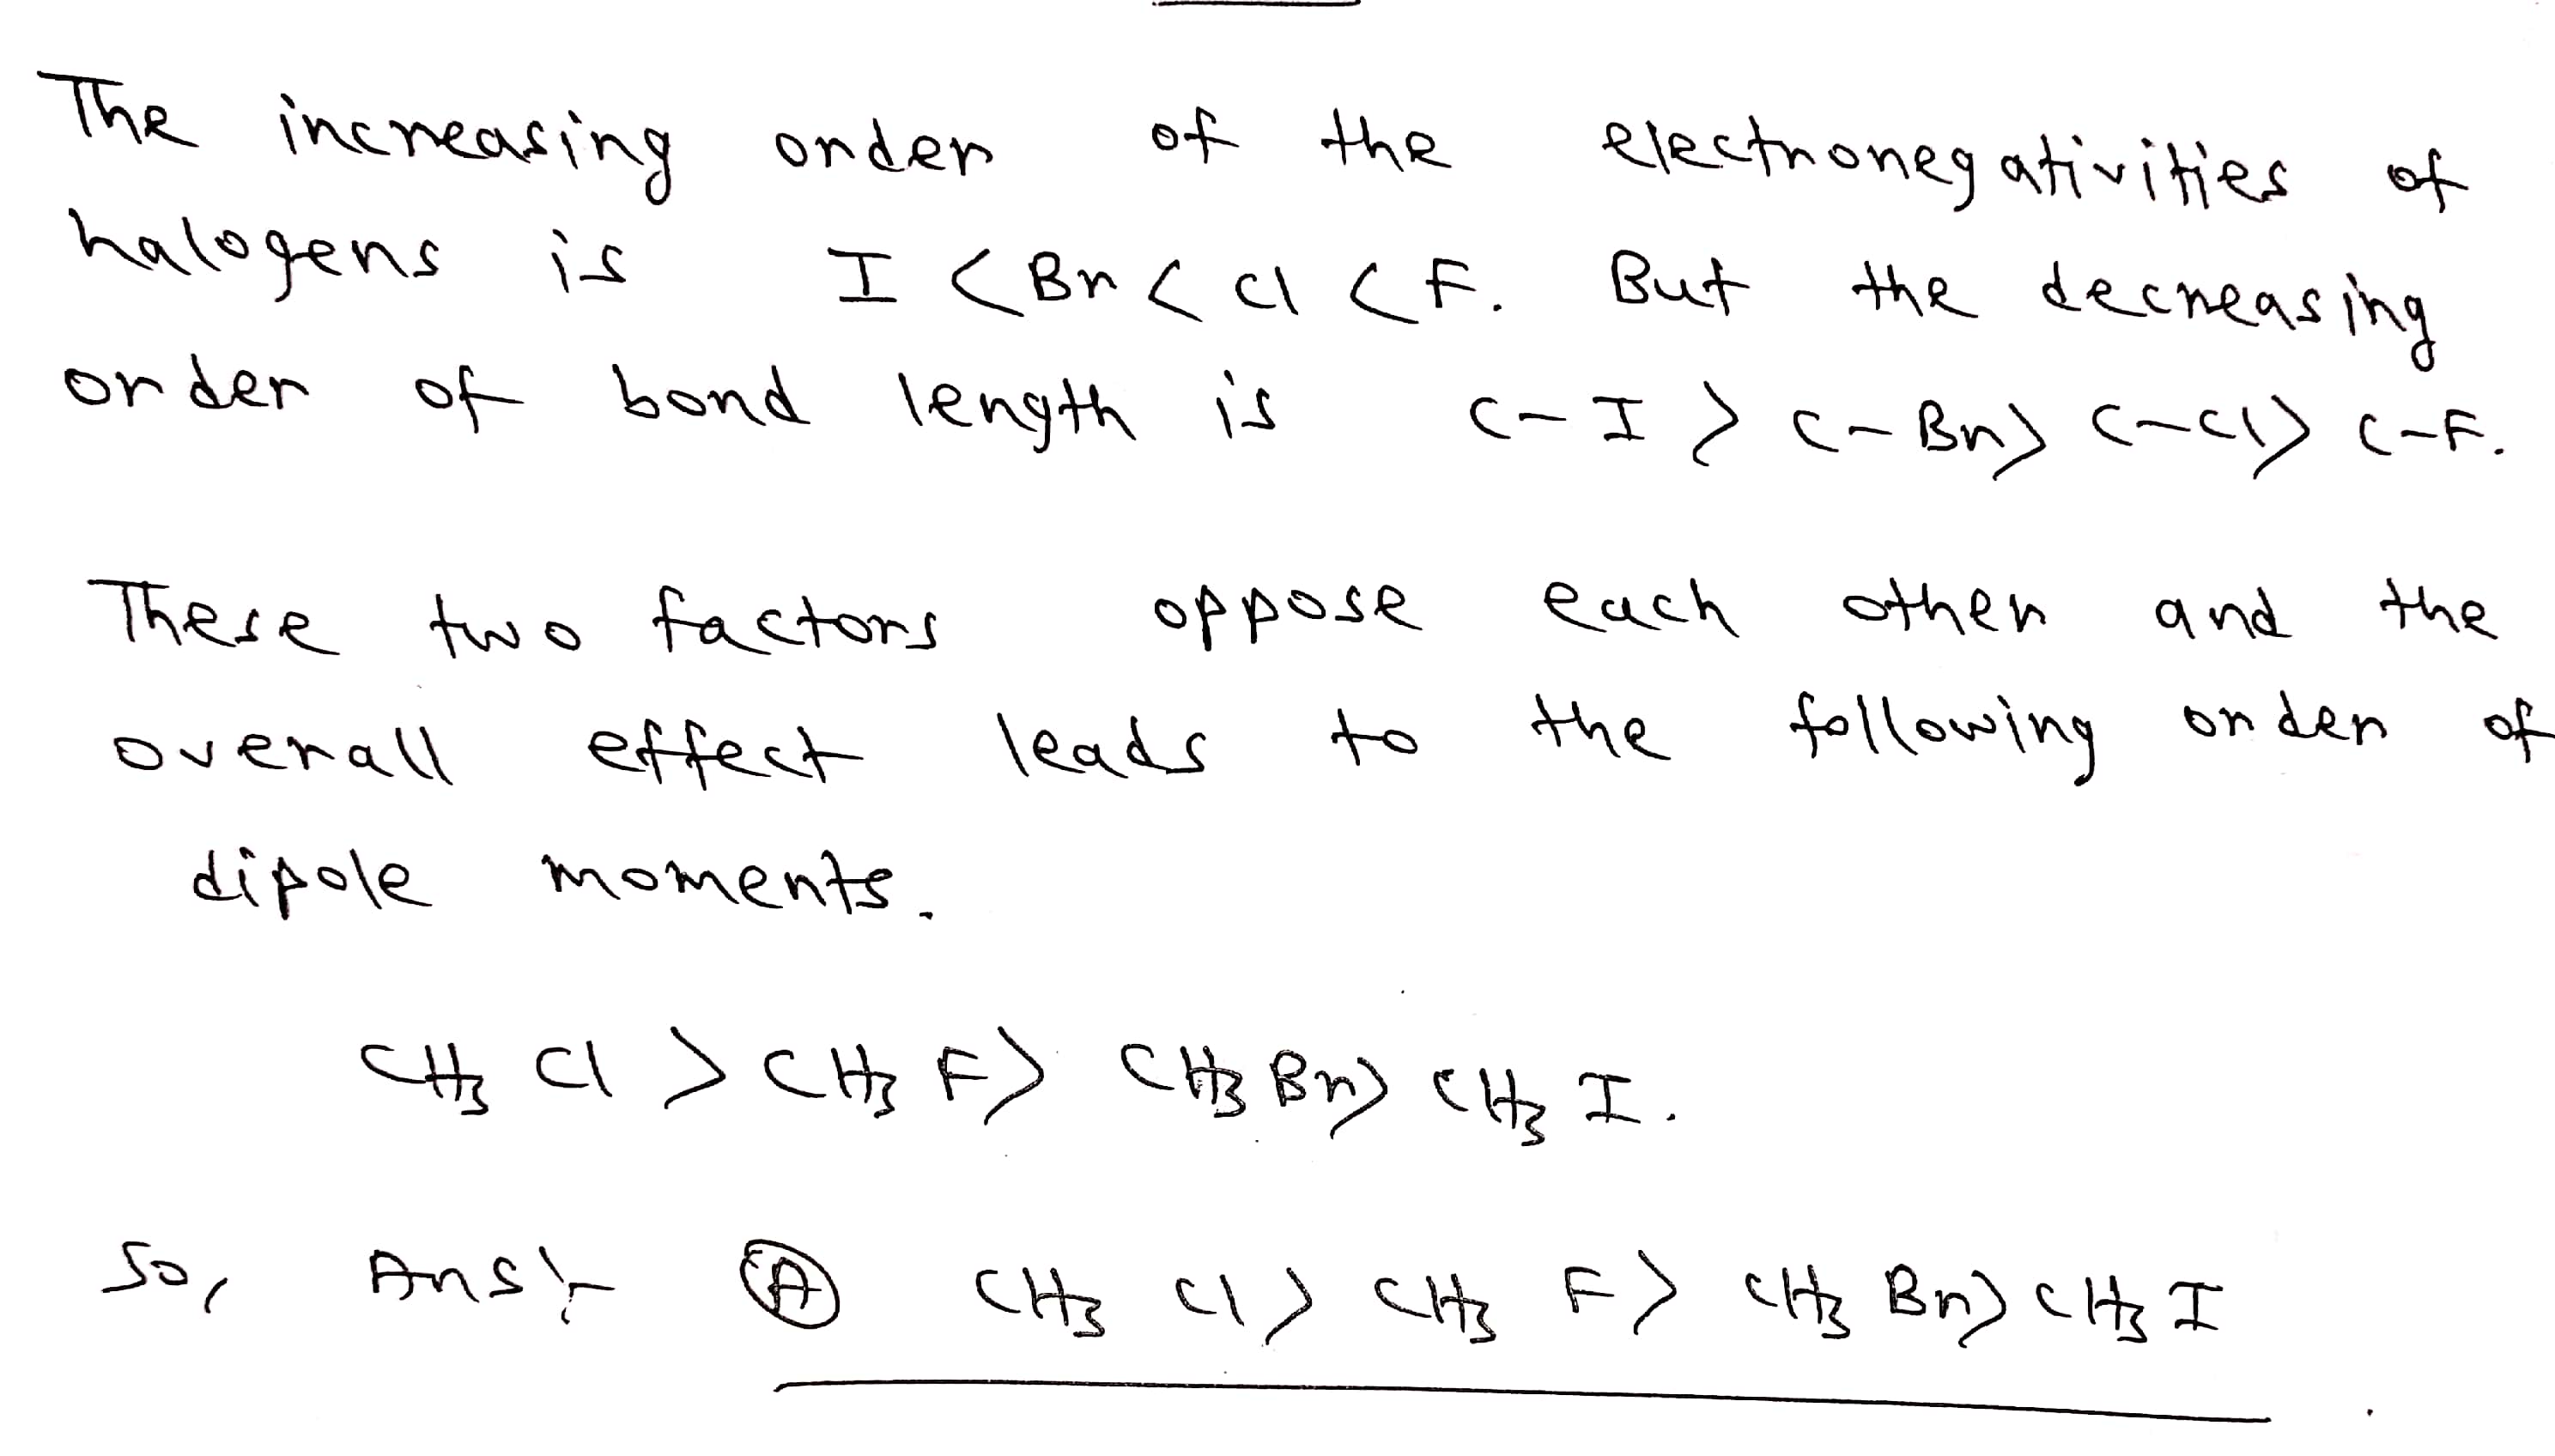 The increasing order of the electronegativities of
halogens is I < Br < Cl < F. But the decreasing
order of bond length is C-I > C-Br > C-Cl > C-F.
These two factors oppose each other and the
overall effect leads to the following order of
dipole moments.
CH₃ Cl > CH₃ F > CH₃ Br > CH₃ I.
So, Ans:- (A) CH₃ Cl > CH₃ F > CH₃ Br > CH₃ I